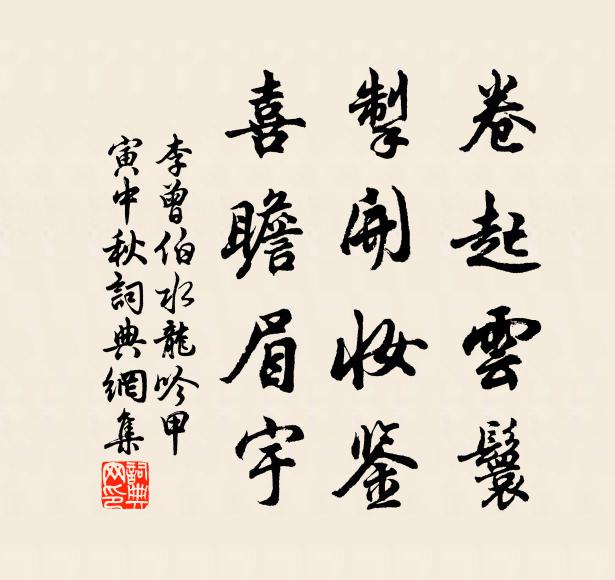 卷起雲鬟
掣開妝鉴
喜瞻眉宇
李曾伯水龍吟甲
寅中秋詞典網集
詞典网印